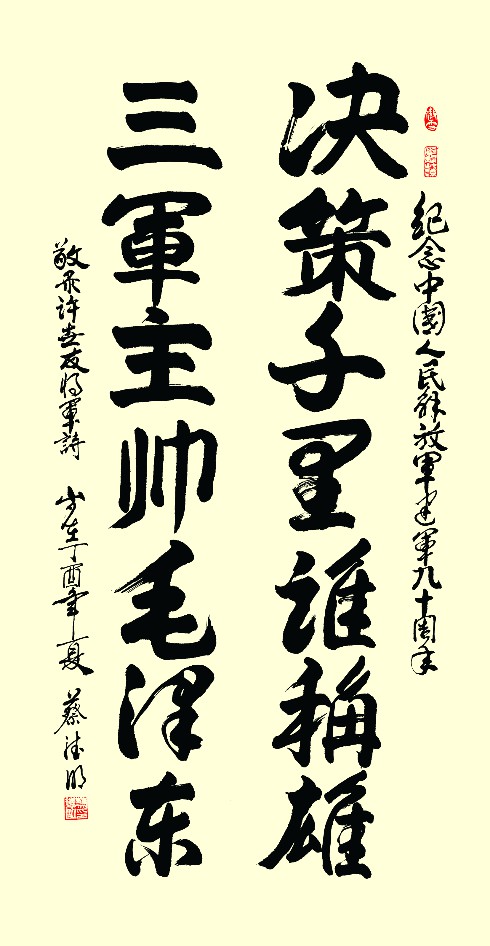 紀念中國人民解放軍建軍九十周年
决策千里誰稱雄
三軍主帅毛泽东
敬录许世友将軍詩 岁在丁酉年夏 蔡德明